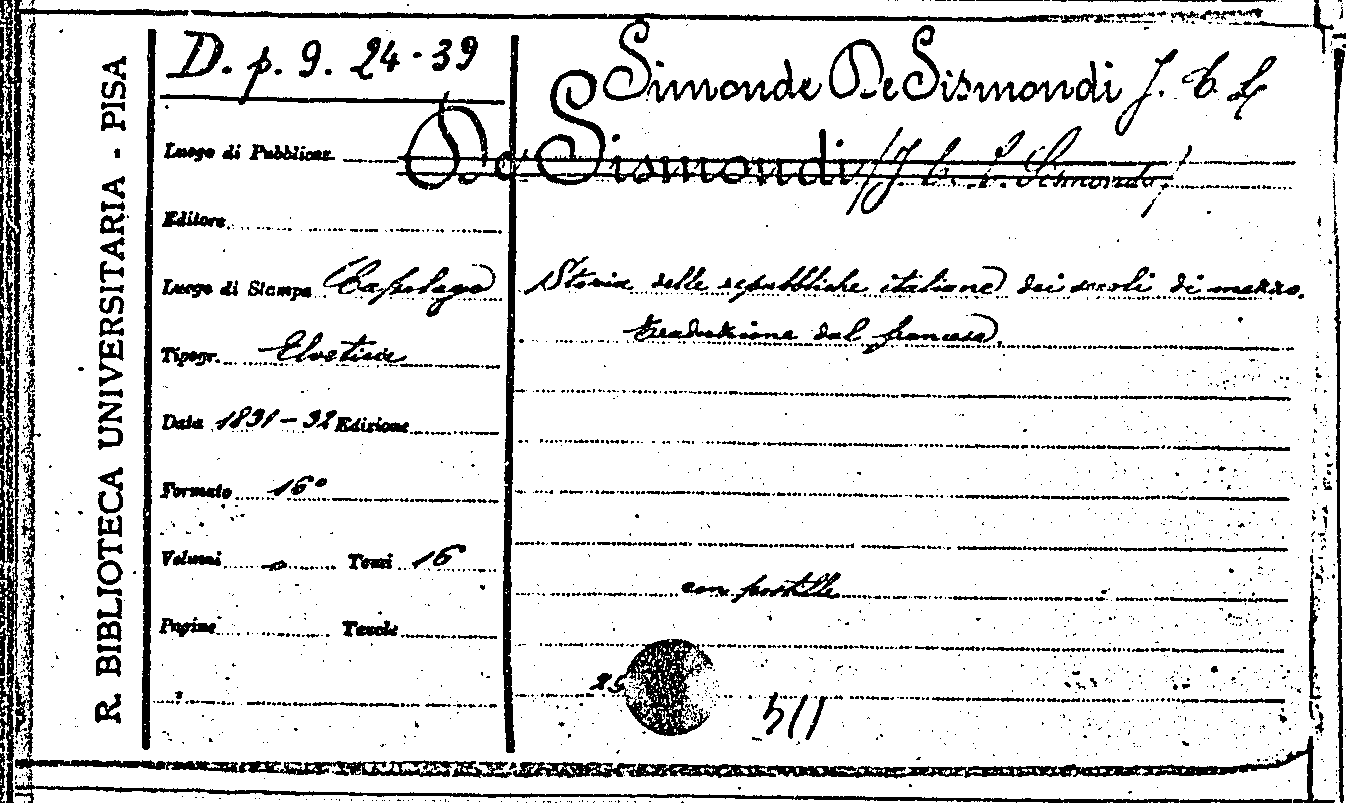 R. BIBLIOTECA UNIVERSITARIA - PISA
D. p. 9. 24-39
Luogo di Pubblicaz.
Editore
Luogo di Stampa Capolago
Tipogr. Elvetica
Data 1831-32 Edizione
Formato 16°
Volumi Tomi 16
Pagine Tavole
Simonde De Sismondi J. C. L.
De Sismondi (J. C. L. Simonde)
Storia delle repubbliche italiane dei secoli di mezzo.
traduzione dal francese.
con postille
25
511